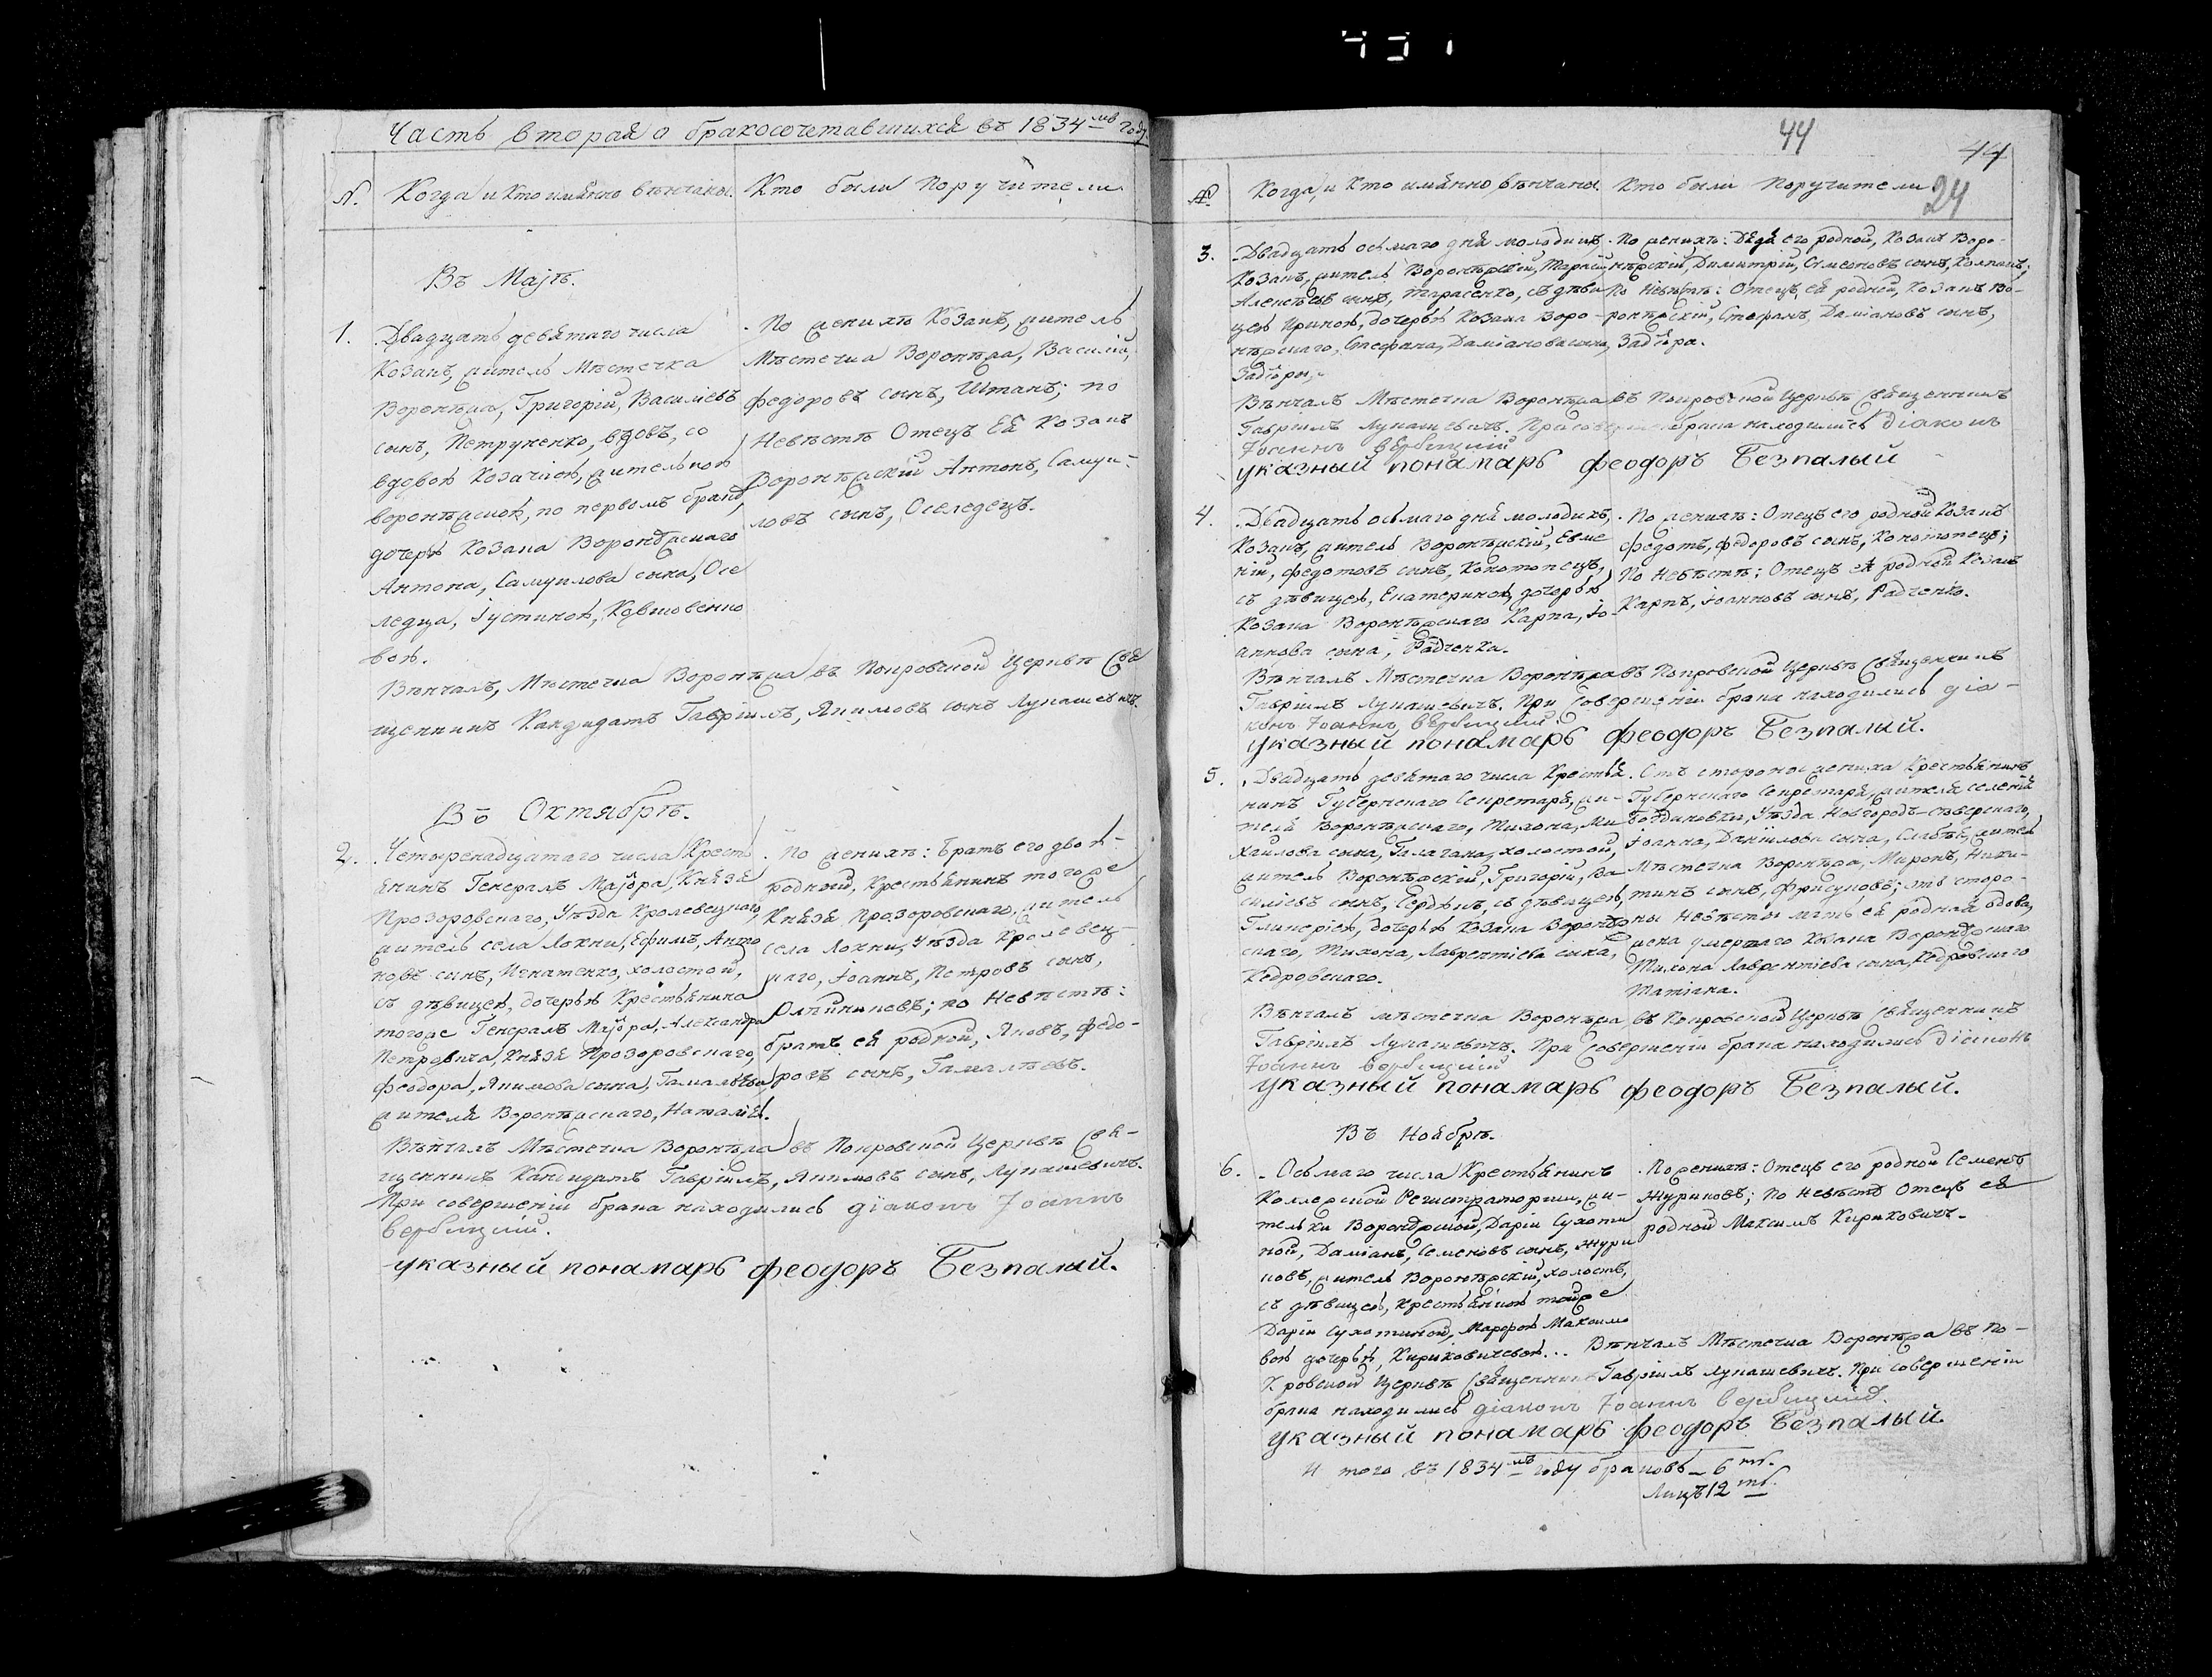 Часть вторая о бракосочетавшихся въ 1834мъ году.
№. Когда и кто имянно вѣнчаны. Кто были поручители
Въ Маѣ.
1. Двадцать девятаго числа
Козакъ, житель Мѣстечка
Воронѣжа, Григорій, Василіевъ
сынъ, Петрученко, вдовъ, со
вдовою Козачкою, жителькою
воронѣжскою, по первомъ бракѣ,
дочерью Козака Воронѣжскаго
Антона, Самуилова сына, Осе
ледца, Іустиною,
вою.
По женихѣ Козакъ, житель
Мѣстечка Воронѣжа, Василій,
Федоровъ сынъ, Штанъ; по
Невѣстѣ Отецъ Ея Козакъ
Воронѣжскій Антонъ, Самуи-
ловъ сынъ, Оселедецъ.
Вѣнчалъ, Мѣстечка Воронѣжа въ Покровской Церквѣ Свя
щенникъ Кандидатъ Гавріилъ, Якимовъ сынъ Лукашевичъ.
Въ Октябрѣ.
2. Четыренадцатаго числа Крестъ
янинъ Генералъ Маіора, Князя
Прозоровскаго, Уѣзда Кролевецкаго,
житель села Локни, Ефимъ, Анто
новъ сынъ, Игнатенко, холостой,
съ дѣвицею, дочерью Крестьянина
тогоже Генералъ Маіора, Александра
Петровича, Князя Прозоровскаго,
Феодора, Якимова сына, Гамалѣева,
жителя Воронѣжскаго, Наталіею.
По женихѣ: Братъ его двою-
родный, Крестьянинъ тогоже
Князя Прозоровскаго, житель
села Локни, Уѣзда Кролевец-
каго, Іоаннъ, Петровъ сынъ,
Олѣйниковъ; по Невѣстѣ:
братъ ея родной, Яковъ, Федо-
ровъ сынъ, Гамалѣевъ.
Вѣнчалъ Мѣстечка Воронѣжа въ Покровской Церквѣ Свя-
щенникъ Кандидатъ Гавріилъ, Якимовъ сынъ, Лукашевичъ.
При совершеніи брака находились діаконъ Іоаннъ
Вербицкій.
указный понамарь Феодоръ Безпалый.
44
44
24
№. Когда, и кто имянно, вѣнчаны. Кто были поручители
3. Двадцать осьмаго дня молодикъ,
Козакъ, житель Воронѣжскій,
Алексѣевъ сынъ, Тарасенко, съ дѣви
цею Ириною, дочерью Козака Воро-
нѣжскаго, Стефана, Даміанова сына,
Задіоры.
По женихѣ: Дядя его родной, Козакъ Воро-
нѣжскій, Димитрій, Симеоновъ сынъ,
По Невѣстѣ: Отецъ ея родной, Козакъ Во-
ронѣжскій, Стефанъ, Даміановъ сынъ,
Задіора.
Вѣнчалъ Мѣстечка Воронѣжа въ Покровской Церквѣ Священникъ
Гавріилъ Лукашевичъ. При совершеніи брака находились діаконъ
Іоаннъ Вербицкій
указный понамарь Феодоръ Безпалый
4. Двадцать осьмаго дня молодикъ,
Козакъ, житель Воронѣжскій, Евме
ній, Федотовъ сынъ, Конотопецъ,
съ дѣвицею, Екатериною, дочерью
Козака Воронѣжскаго Карпа, Іо-
аннова сына, Радченка.
По женихѣ: Отецъ его родной Козакъ
Федотъ, Федоровъ сынъ, Конотопецъ;
По Невѣстѣ: Отецъ ея родной Козакъ
Карпъ, Іоанновъ сынъ, Радченко.
Вѣнчалъ Мѣстечка Воронѣжа въ Покровской Церквѣ Священникъ
Гавріилъ Лукашевичъ. При совершеніи брака находились діа-
конъ Іоаннъ Вербицкій.
указный понамарь Феодоръ Безпалый.
5. Двадцать девятаго числа Крестья
нинъ Губернскаго Секретаря, жи-
теля Воронѣжскаго, Тихона, Ми
хайлова сына, Галагана, холостой,
житель Воронѣжскій, Григорій, Ва
силіевъ сынъ, Сердюкъ, съ дѣвицею,
Гликеріею, дочерью Козака Воронѣж
скаго, Тихона, Лаврентіева сына,
Кедровскаго.
Отъ стороны жениха Крестьянинъ
Губернскаго Секретаря, жителя селенія
Богдановки, Уѣзда Новгородъ-сѣверскаго,
Іоанна, Даніилова сына, житель
Мѣстечка Воронѣжа, Миронъ, Ники-
тинъ сынъ, отъ сторо-
ны Невѣсты мать ея родная вдова,
жена умершаго Козака Воронѣжскаго
Тихона Лаврентіева сына, Кедровскаго
Татіана.
Вѣнчалъ мѣстечка Воронѣжа въ Покровской Церквѣ Священникъ
Гавріилъ Лукашевичъ. При совершеніи брака находились діаконъ
Іоаннъ Вербицкій
указный понамарь Феодоръ Безпалый.
Въ Ноябрѣ.
6. Осьмаго числа Крестьянинъ
Коллежской Регистраторши, жи-
тельки Воронѣжской, Даріи Сухоти
ной, Даміанъ, Семеновъ сынъ, Жури
ковъ, житель Воронѣжскій, холостъ,
съ дѣвицею, крестьянкою тойже
Даріи Сухотиной, Марфою Максимо
вою дочерью, Кириковичевою...
По женихѣ: Отецъ его родной Семенъ
Журиковъ; по Невѣстѣ Отецъ ея
родной Максимъ Кириковичъ.
Вѣнчалъ Мѣстечка Воронѣжа въ По-
кровской Церквѣ Священникъ Гавріилъ Лукашевичъ. При совершеніи
брака находились діаконъ Іоаннъ Вербицкій.
указный понамарь Феодоръ Безпалый.
И того въ 1834мъ году браковъ - 6ть.
Лицъ 12ть.